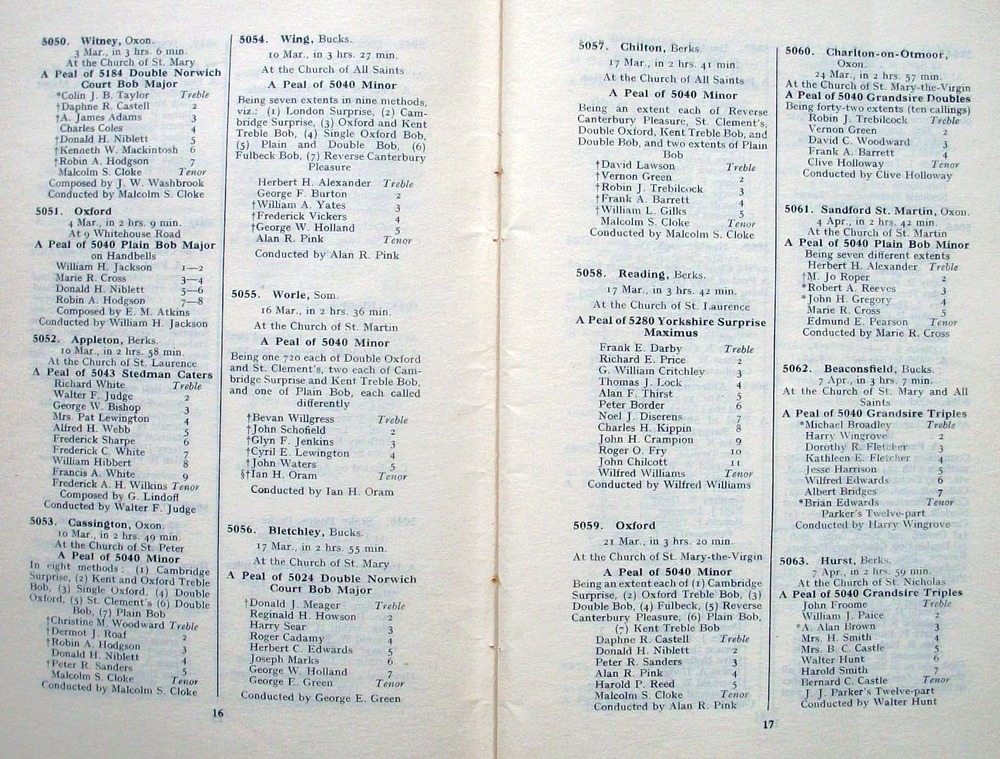 5050. Witney, Oxon.
3 Mar., in 3 hrs. 6 min.
At the Church of St. Mary
A Peal of 5184 Double Norwich
Court Bob Major
*Colin J. B. Taylor Treble
†Daphne R. Castell 2
†A. James Adams 3
Charles Coles 4
†Donald H. Niblett 5
†Kenneth W. Mackintosh 6
†Robin A. Hodgson 7
Malcolm S. Cloke Tenor
Composed by J. W. Washbrook
Conducted by Malcolm S. Cloke
5051. Oxford
4 Mar., in 2 hrs. 9 min.
At 9 Whitehouse Road
A Peal of 5040 Plain Bob Major
on Handbells
William H. Jackson 1—2
Marie R. Cross 3—4
Donald H. Niblett 5—6
Robin A. Hodgson 7—8
Composed by E. M. Atkins
Conducted by William H. Jackson
5052. Appleton, Berks.
10 Mar., in 2 hrs. 58 min.
At the Church of St. Laurence
A Peal of 5043 Stedman Caters
Richard White Treble
Walter F. Judge 2
George W. Bishop 3
Mrs. Pat Lewington 4
Alfred H. Webb 5
Frederick Sharpe 6
Frederick C. White 7
William Hibbert 8
Francis A. White 9
Frederick A. H. Wilkins Tenor
Composed by G. Lindoff
Conducted by Walter F. Judge
5053. Cassington, Oxon.
10 Mar., in 2 hrs. 49 min.
At the Church of St. Peter
A Peal of 5040 Minor
In eight methods: (1) Cambridge
Surprise, (2) Kent and Oxford Treble
Bob, (3) Single Oxford, (4) Double
Oxford, (5) St. Clement's (6) Double
Bob, (7) Plain Bob
†Christine M. Woodward Treble
†Dermot J. Roaf 2
†Robin A. Hodgson 3
Donald H. Niblett 4
†Peter R. Sanders 5
Malcolm S. Cloke Tenor
Conducted by Malcolm S. Cloke
5054. Wing, Bucks.
10 Mar., in 3 hrs. 27 min.
At the Church of All Saints
A Peal of 5040 Minor
Being seven extents in nine methods,
viz.: (1) London Surprise, (2) Cam-
bridge Surprise, (3) Oxford and Kent
Treble Bob, (4) Single Oxford Bob,
(5) Plain and Double Bob, (6)
Fulbeck Bob, (7) Reverse Canterbury
Pleasure
Herbert H. Alexander Treble
George F. Burton 2
†William A. Yates 3
†Frederick Vickers 4
†George W. Holland 5
Alan R. Pink Tenor
Conducted by Alan R. Pink
5055. Worle, Som.
16 Mar., in 2 hrs. 36 min.
At the Church of St. Martin
A Peal of 5040 Minor
Being one 720 each of Double Oxford
and St. Clement's, two each of Cam-
bridge Surprise and Kent Treble Bob,
and one of Plain Bob, each called
differently
†Bevan Willgress Treble
†John Schofield 2
†Glyn F. Jenkins 3
†Cyril E. Lewington 4
†John Waters 5
§†Ian H. Oram Tenor
Conducted by Ian H. Oram
5056. Bletchley, Bucks.
17 Mar., in 2 hrs. 55 min.
At the Church of St. Mary
A Peal of 5024 Double Norwich
Court Bob Major
†Donald J. Meager Treble
Reginald H. Howson 2
Harry Sear 3
Roger Cadamy 4
Herbert C. Edwards 5
Joseph Marks 6
George W. Holland 7
George E. Green Tenor
Conducted by George E. Green
16
5057. Chilton, Berks.
17 Mar., in 2 hrs. 41 min.
At the Church of All Saints
A Peal of 5040 Minor
Being an extent each of Reverse
Canterbury Pleasure, St. Clement's,
Double Oxford, Kent Treble Bob, and
Double Bob, and two extents of Plain
Bob
†David Lawson Treble
†Vernon Green 2
†Robin J. Trebilcock 3
†Frank A. Barrett 4
†William L. Gilks 5
Malcolm S. Cloke Tenor
Conducted by Malcolm S. Cloke
5058. Reading, Berks.
17 Mar., in 3 hrs. 42 min.
At the Church of St. Laurence
A Peal of 5280 Yorkshire Surprise
Maximus
Frank E. Darby Treble
Richard E. Price 2
G. William Critchley 3
Thomas J. Lock 4
Alan F. Thirst 5
Peter Border 6
Noel J. Diserens 7
Charles H. Kippin 8
John H. Crampion 9
Roger O. Fry 10
John Chilcott 11
Wilfred Williams Tenor
Conducted by Wilfred Williams
5059. Oxford
21 Mar., in 3 hrs. 20 min.
At the Church of St. Mary-the-Virgin
A Peal of 5040 Minor
Being an extent each of (1) Cambridge
Surprise, (2) Oxford Treble Bob, (3)
Double Bob, (4) Fulbeck, (5) Reverse
Canterbury Pleasure, (6) Plain Bob,
(7) Kent Treble Bob
Daphne R. Castell Treble
Donald H. Niblett 2
Peter R. Sanders 3
Alan R. Pink 4
Harold P. Reed 5
Malcolm S. Cloke Tenor
Conducted by Alan R. Pink
5060. Charlton-on-Otmoor,
Oxon.
24 Mar., in 2 hrs. 57 min.
At the Church of St. Mary-the-Virgin
A Peal of 5040 Grandsire Doubles
Being forty-two extents (ten callings)
Robin J. Trebilcock Treble
Vernon Green 2
David C. Woodward 3
Frank A. Barrett 4
Clive Holloway Tenor
Conducted by Clive Holloway
5061. Sandford St. Martin, Oxon.
4 Apr., in 2 hrs. 42 min.
At the Church of St. Martin
A Peal of 5040 Plain Bob Minor
Being seven different extents
Herbert H. Alexander Treble
†M. Jo Roper 2
*Robert A. Reeves 3
*John H. Gregory 4
Marie R. Cross 5
Edmund E. Pearson Tenor
Conducted by Marie R. Cross
5062. Beaconsfield, Bucks.
7 Apr., in 3 hrs. 7 min.
At the Church of St. Mary and All
Saints
A Peal of 5040 Grandsire Triples
*Michael Broadley Treble
Harry Wingrove 2
Dorothy R. Fletcher 3
Kathleen E. Fletcher 4
Jesse Harrison 5
Wilfred Edwards 6
Albert Bridges 7
*Brian Edwards Tenor
Parker's Twelve-part
Conducted by Harry Wingrove
5063. Hurst, Berks.
7 Apr., in 2 hrs. 59 min.
At the Church of St. Nicholas
A Peal of 5040 Grandsire Triples
John Froome Treble
William J. Paice 2
*A. Alan Brown 3
Mrs. H. Smith 4
Mrs. B. C. Castle 5
Walter Hunt 6
Harold Smith 7
Bernard C. Castle Tenor
J. J. Parker's Twelve-part
Conducted by Walter Hunt
17